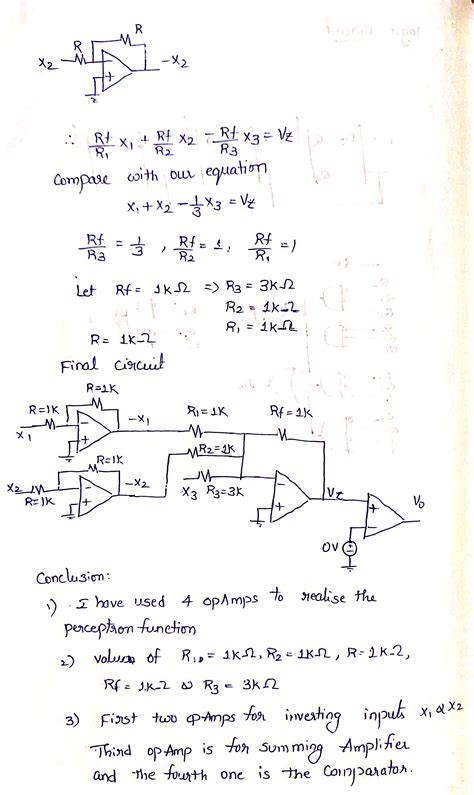 R
R
X2
-X2
∴ Rf/R1 X1 + Rf/R2 X2 - Rf/R3 X3 = Vz
Compare with our equation
X1 + X2 - 1/3 X3 = Vz
Rf/R3 = 1/3 , Rf/R2 = 1 , Rf/R1 = 1
Let Rf = 1kΩ => R3 = 3kΩ
R2 = 1kΩ
R1 = 1kΩ
R = 1kΩ
Final circuit
R=1K
R=1K
-X1
R1=1K
Rf=1K
X1
R=1K
R2=1K
X2
-X2
R=1K
X3 R3=3K
Vz
Vo
0V
Conclusion:
1) I have used 4 opAmps to realise the
perceptron function
2) values of R1 = 1kΩ, R2 = 1kΩ, R=1kΩ,
Rf = 1kΩ & R3 = 3kΩ
3) First two opAmps for inverting inputs X1 & X2
Third opAmp is for summing Amplifier
and the fourth one is the Comparator.